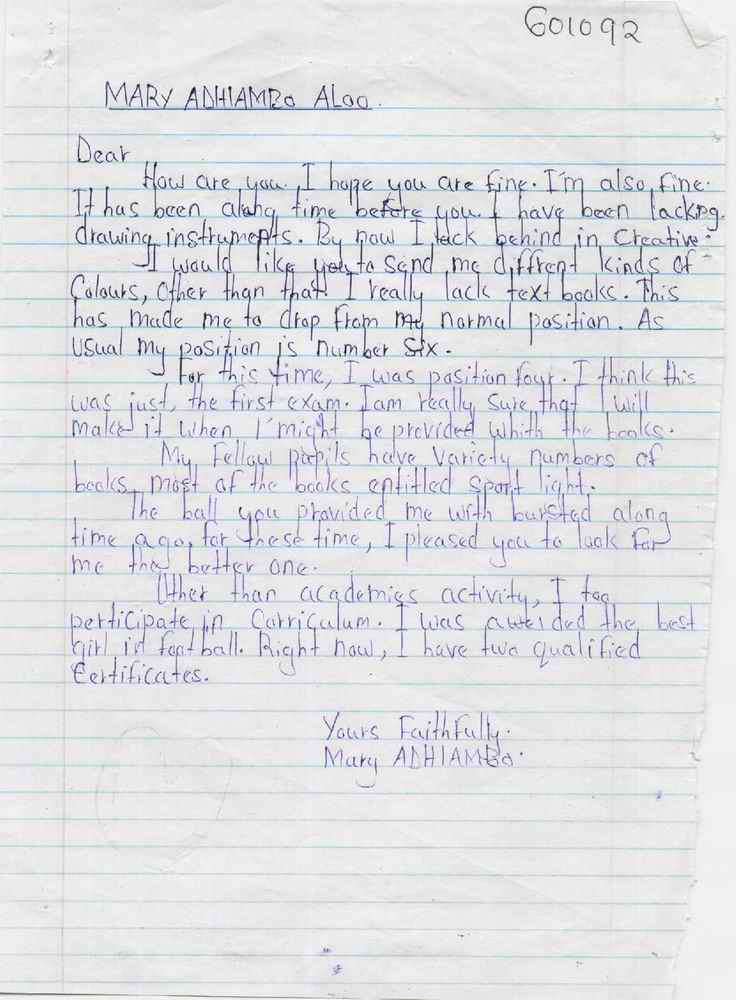 601092
MARY ADHIAMBO ALOO.
Dear
How are you. I hope you are fine. I'm also fine.
It has been along time before you. I have been lacking
drawing instruments. By now I lack behind in Creative.
I would like you to send me diffrent kinds of
Colours, Other than that I really lack text books. This
has made me to drop from my normal position. As
usual my position is number six.
For this time, I was position four. I think this
was just, the first exam. Iam really sure that I will
make it when I might be provided whith the books.
My Fellow pupils have variety numbers of
books, most of the books entitled sport light.
The ball you provided me with bursted along
time ago, for these time, I pleased you to look for
me the better one.
Other than academics activity, I too
perticipate in Carriculum. I was awerded the best
girl in football. Right now, I have two qualified
Certificates.
Yours Faithfully.
Mary ADHIAMBO.